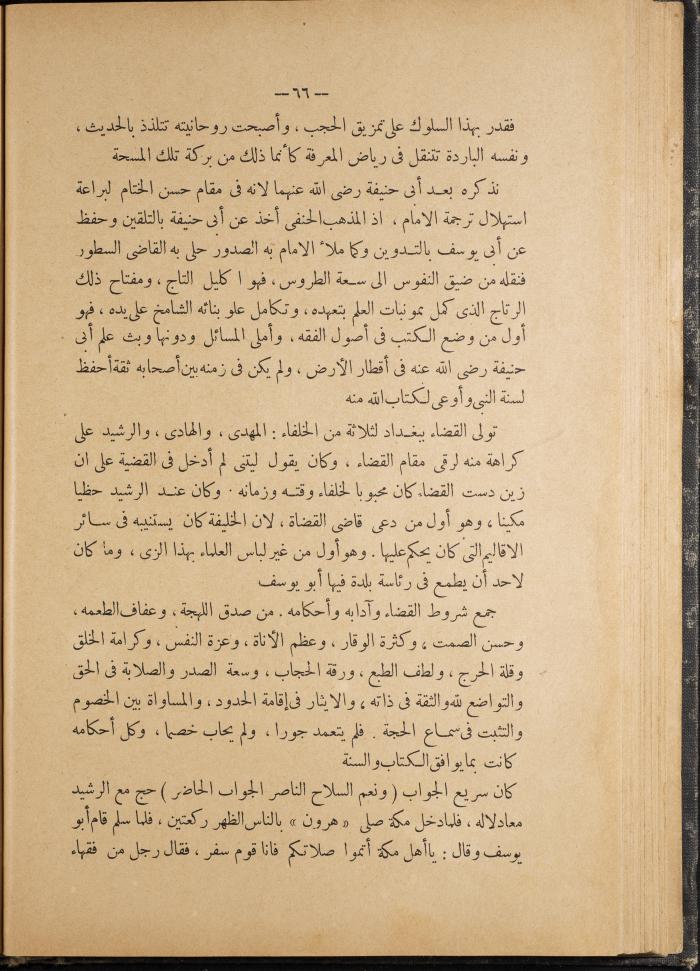 — ٦٦ —
فقدر بهذا السلوك على تمزيق الحجب ، وأصبحت روحانيته تتلذذ بالحديث ،
ونفسه الباردة تتنقل فى رياض المعرفة كأنما ذلك من بركة تلك المسحة
نذكره بعد أبى حنيفة رضى الله عنهما لانه فى مقام حسن الختام لبراعة
استهلال ترجمة الامام ، اذ المذهب الحنفى أخذ عن أبى حنيفة بالتلقين وحفظ
عن أبى يوسف بالتدوين وكما ملأ الامام به الصدور حلى به القاضى السطور
فنقله من ضيق النفوس الى سعة الطروس ، فهو ا كليل التاج ، ومفتاح ذلك
الرتاج الذى كمل بمونبات العلم بتعهده ، وتكامل علو بنائه الشامخ على يده ، فهو
أول من وضع الكتب فى أصول الفقه ، وأملى المسائل ودونها وبث علم أبى
حنيفة رضى الله عنه فى أقطار الأرض ، ولم يكن فى زمنه بين أصحابه ثقة أحفظ
لسنة النبى وأوعى لكتاب الله منه
تولى القضاء ببغداد لثلاثة من الخلفاء : المهدى ، والهادى ، والرشيد على
كراهة منه لرقى مقام القضاء ، وكان يقول ليتنى لم أدخل فى القضية على ان
زين دست القضاء كان محبوبا لخلفاء وقته وزمانه . وكان عند الرشيد حظيا
مكينا ، وهو أول من دعى قاضى القضاة ، لان الخليفة كان يستنيبه فى سائر
الاقاليم التى كان يحكم عليها . وهو أول من غير لباس العلماء بهذا الزى ، وما كان
لاحد أن يطمع فى رئاسة بلدة فيها أبو يوسف
جمع شروط القضاء وآدابه وأحكامه . من صدق اللهجة ، وعفاف الطعمه ،
وحسن الصمت ، وكثرة الوقار ، وعظم الأناة ، وعزة النفس ، وكرامة الخلق
وقلة الحرج ، ولطف الطبع ، ورقة الحجاب ، وسعة الصدر والصلابة فى الحق
والتواضع لله والثقة فى ذاته ، والايثار فى إقامة الحدود ، والمساواة بين الخصوم
والتثبت فى سماع الحجة . فلم يتعمد جورا ، ولم يحاب خصما ، وكل أحكامه
كانت بما يوافق الكتاب والسنة
كان سريع الجواب ( ونعم السلاح الناصر الجواب الحاضر ) حج مع الرشيد
معادلاله ، فلما دخل مكة صلى « هرون » بالناس الظهر ركعتين ، فلما سلم قام أبو
يوسف وقال : ياأهل مكة أتموا صلاتكم فانا قوم سفر ، فقال رجل من فقهاء